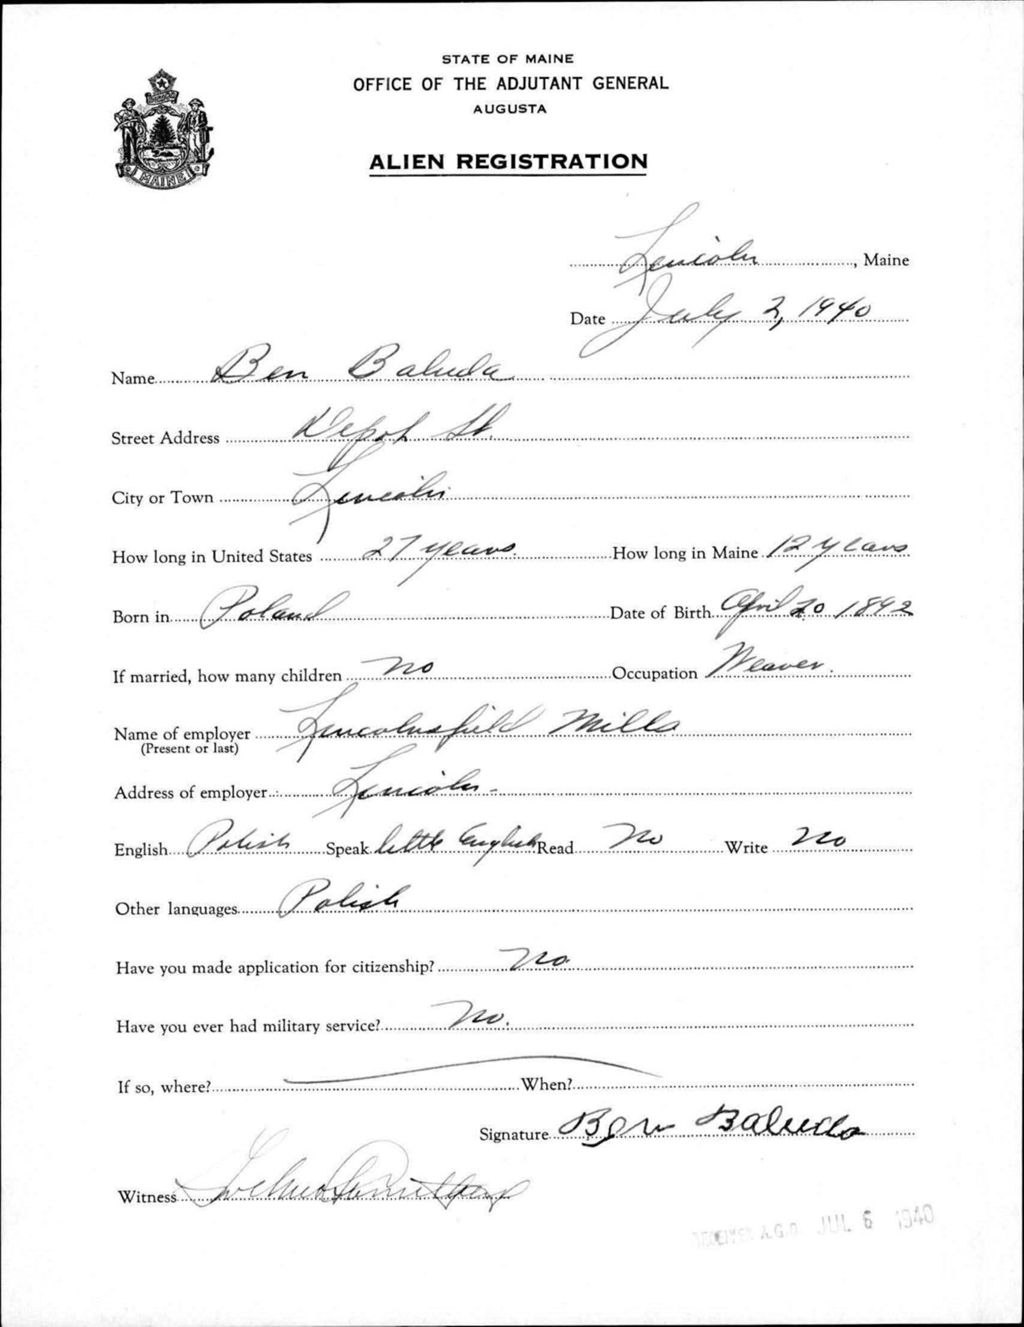 STATE OF MAINE
OFFICE OF THE ADJUTANT GENERAL
AUGUSTA
MAINE
ALIEN REGISTRATION
Lincoln, Maine
Date July 2, 1940
Name Ben Baluda
Street Address Depot St.
City or Town Lincoln
How long in United States 27 years How long in Maine 12 years
Born in Poland Date of Birth April 20 1892
If married, how many children no Occupation Weaver.
Name of employer Lincolnsfield Mills
(Present or last)
Address of employer Lincoln
English Polish Speak little English Read No Write No
Other languages Polish
Have you made application for citizenship? No
Have you ever had military service? No.
If so, where? When?
Signature Ben Baluda
Witness
RECEIVED A.G.O. JUL 6 1940